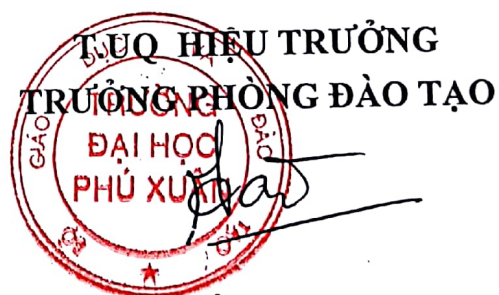 T.UQ HIỆU TRƯỞNG
TRƯỞNG PHÒNG ĐÀO TẠO
TRƯỜNG
ĐẠI HỌC
PHÚ XUÂN
GIÁO DỤC
ĐÀO